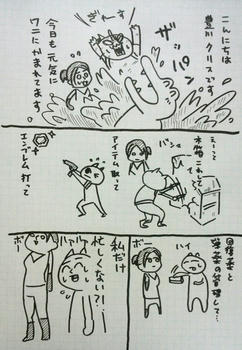 こんにちは
豊川クリスです
ザッパーン
ぎゃーす
今日も元気に
ワニにかまれてます
えーって
木箱こわして
バシュ
アイテム取って
エンブレム打って
回復薬と
弾薬の管理して…
ハイ
ボー
私だけ
忙しくない?!…
ハァハァ
ボー